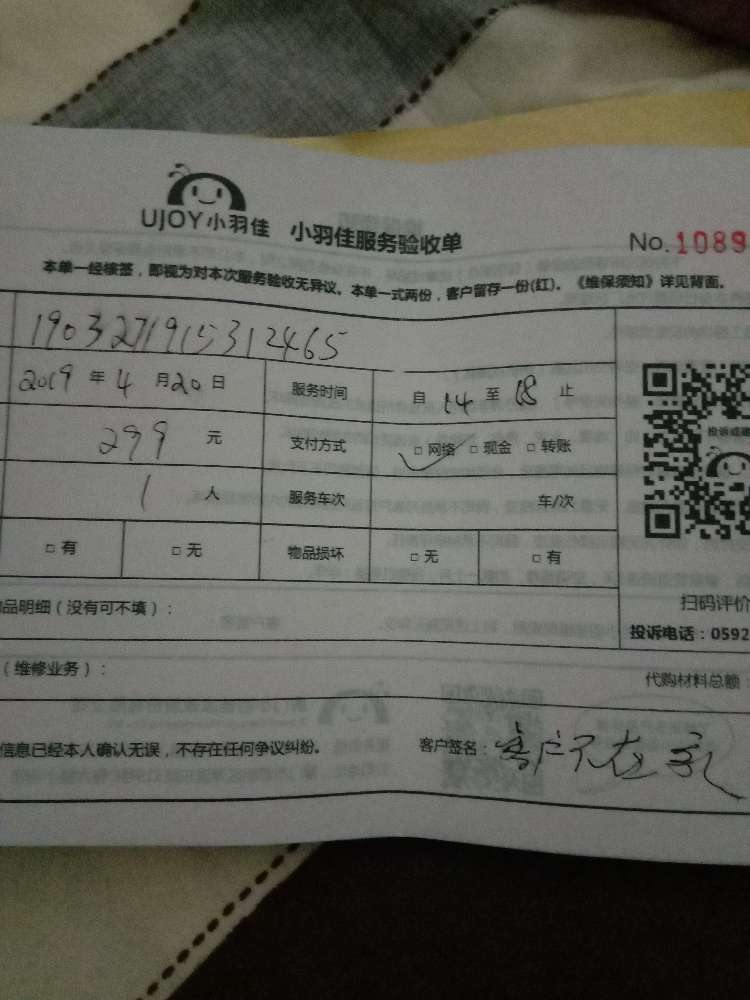 UJOY小羽佳 小羽佳服务验收单 No.1089
本单一经核签，即视为对本次服务验收无异议。本单一式两份，客户留存一份(红)。《维保须知》详见背面。
1903271915312465
2019 年 4 月 20 日 服务时间 自 14 至 18 止
299 元 支付方式 □ 网络 □ 现金 □ 转账
1 人 服务车次 车/次
□ 有 □ 无 物品损坏 □ 无 □ 有
扫码评价
品明细（没有可不填）：
投诉电话：0592
（维修业务）：
代购材料总额：
信息已经本人确认无误，不存在任何争议纠纷。 客户签名：客户不在家